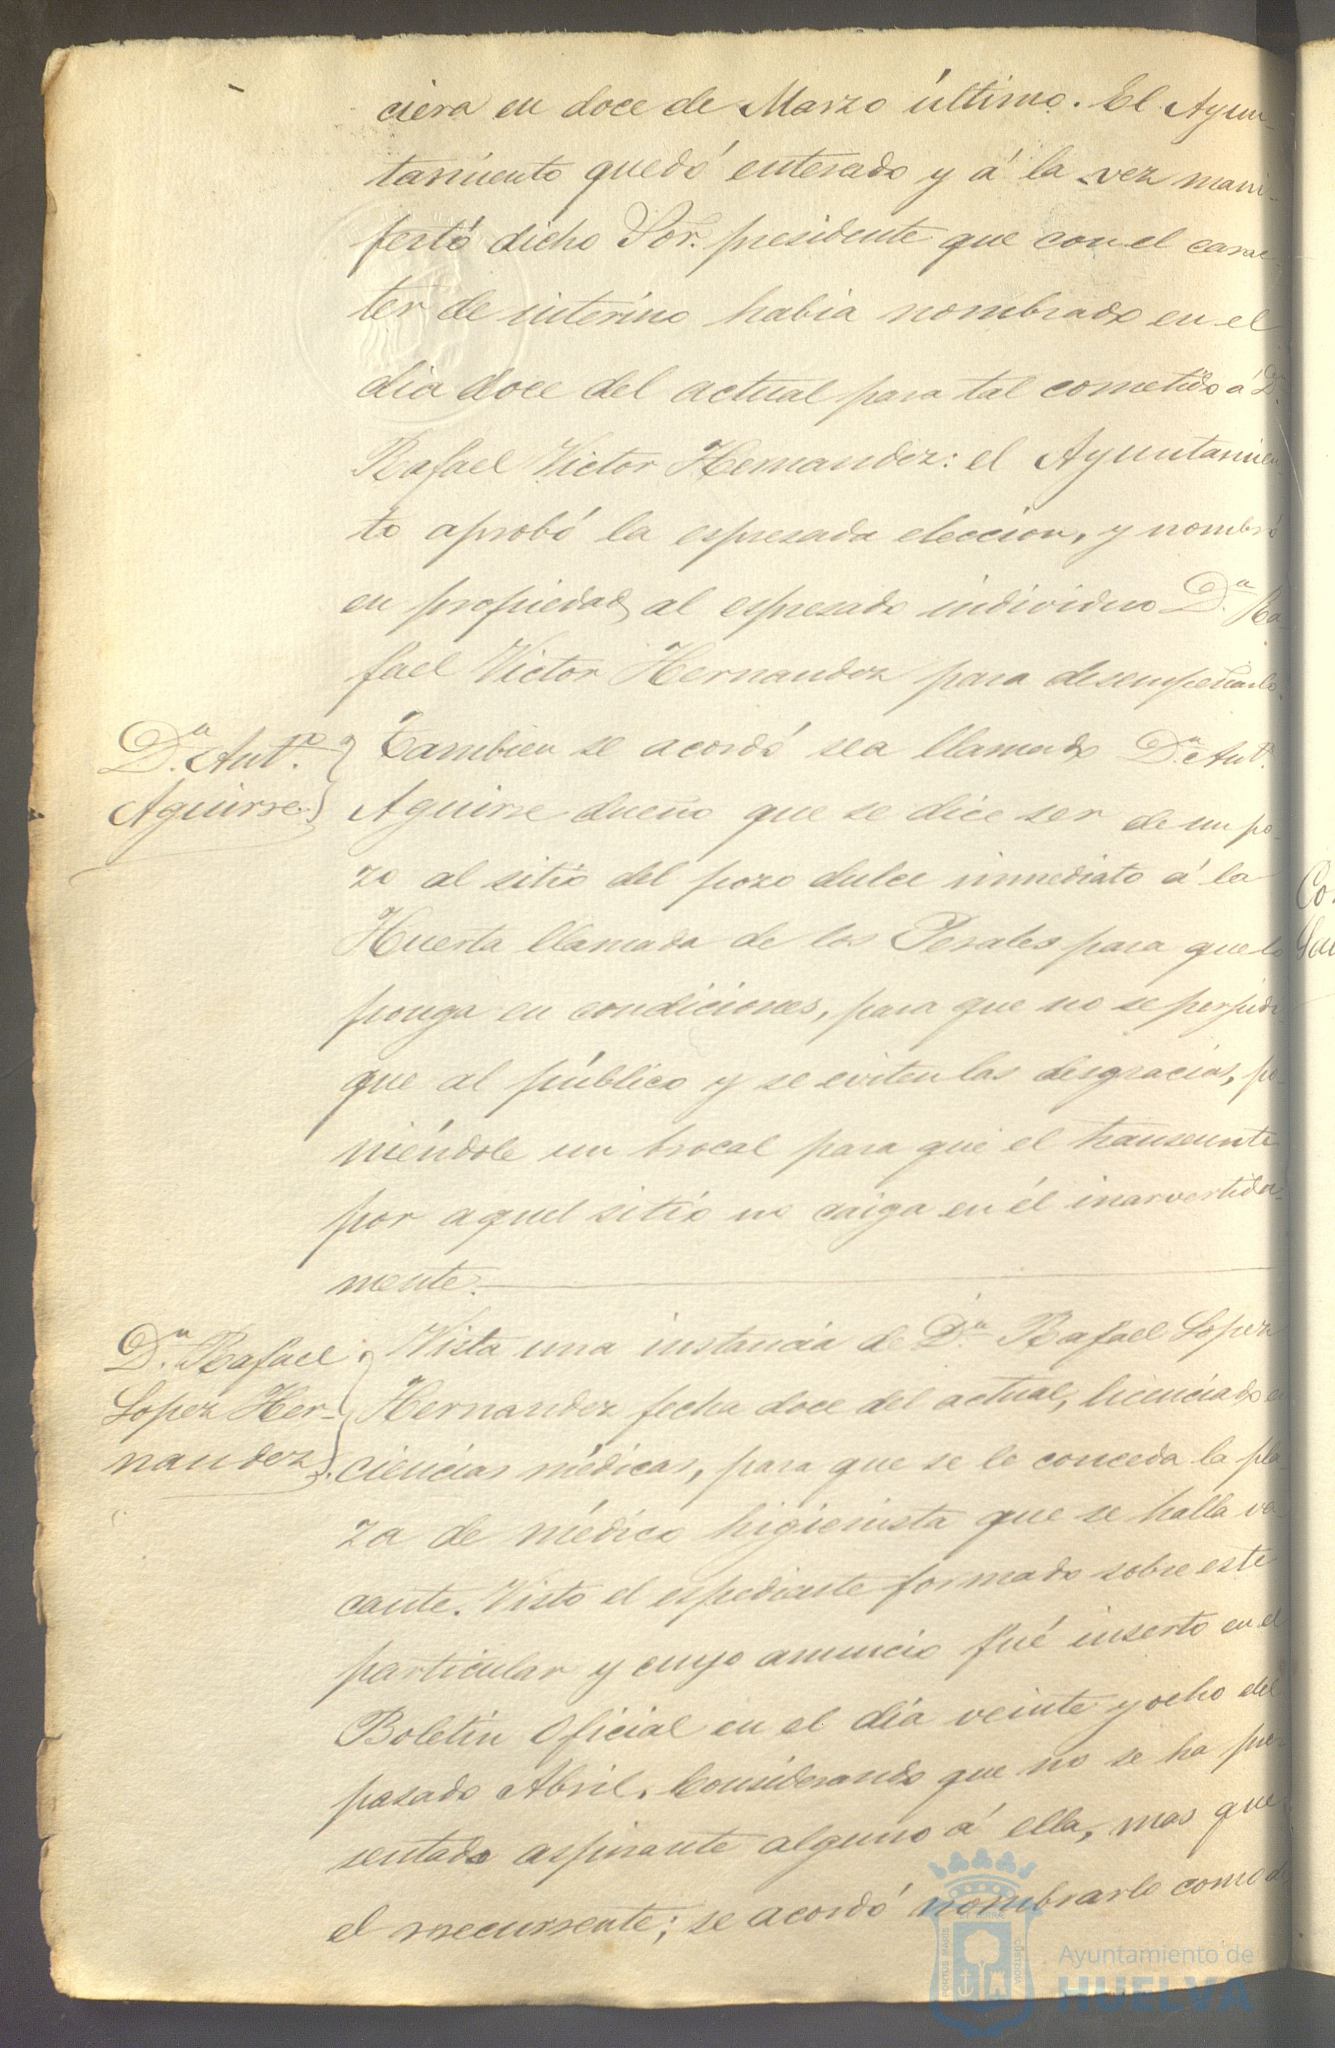 ciera en doce de Marzo último. El Ayun-
tamiento quedó enterado y á la vez mani-
festó dicho Sor. presidente que con el carac-
ter de interino habia nombrado en el
dia doce del actual para tal cometido á Dn.
Rafael Victor Hernandez: el Ayuntamien
to aprobó la espresada eleccion, y nombró
en propiedad al espresado individuo Dn. Ra-
fael Victor Hernandez para desempeñarlo.
Dn. Antº.
Aguirre
Tambien se acordó sea llamado Dn. Antº.
Aguirre dueño que se dice ser de un po-
zo al sitio del pozo dulce inmediato á la
Huerta llamada de los Perales para que lo
ponga en condiciones, para que no se perjudi
que al público y se eviten las desgracias, po-
niéndole un brocal para que el transeunte
por aquel sitio no caiga en él inarvertida-
mente.
Dn. Rafael
Lopez Her-
nandez
Vista una instancia de Dn. Rafael Lopez
Hernandez fecha doce del actual, licenciado en
ciencias médicas, para que se le conceda la pla
za de médico higienista que se halla va-
cante. Visto el espediente formado sobre este
particular y cuyo anuncio fué inserto en el
Boletin Oficial en el dia veinte y ocho del
pasado Abril. Considerando que no se ha pre-
sentado aspirante alguno á ella, mas que
el recurrente; se acordó nombrarlo como d
Co.
Ayuntamiento de
HUELVA
PORTUS MARIS
CUSTODIA